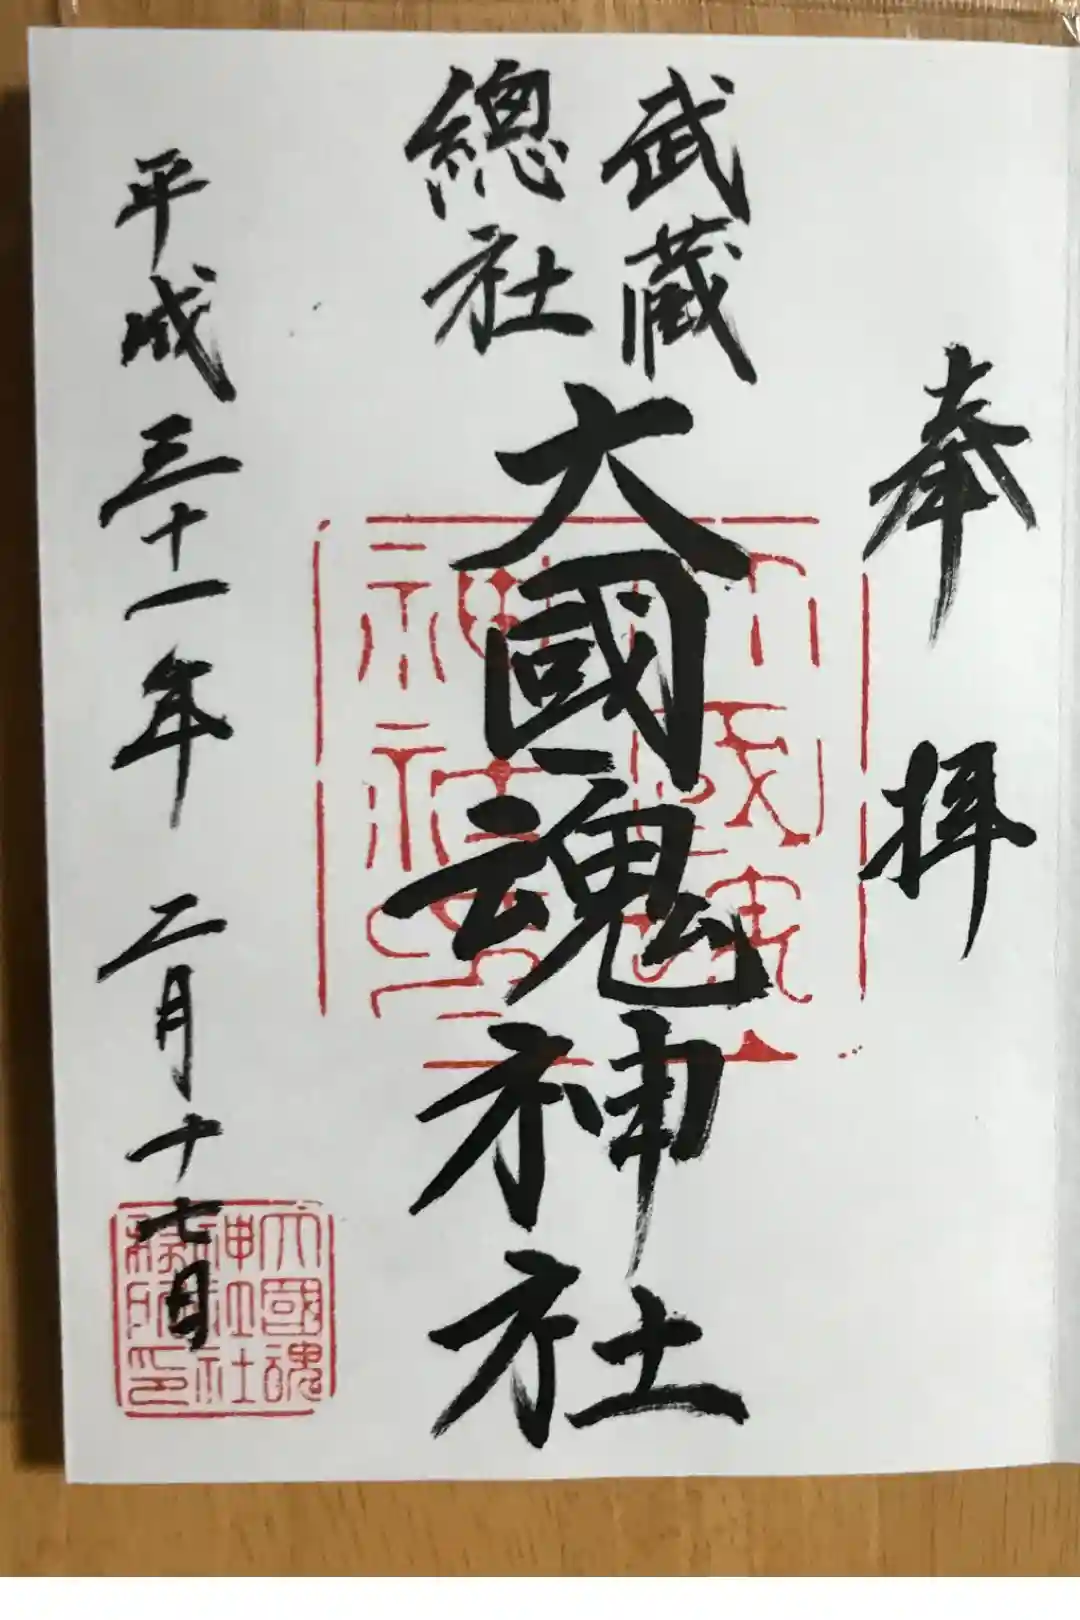 奉拝
武蔵
總社
大國魂神社
平成三十一年 二月十七日
大國魂
神社